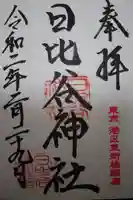 奉拝
東京 港区東新橋鎮座
日比谷神社
令和二年二月二十九日